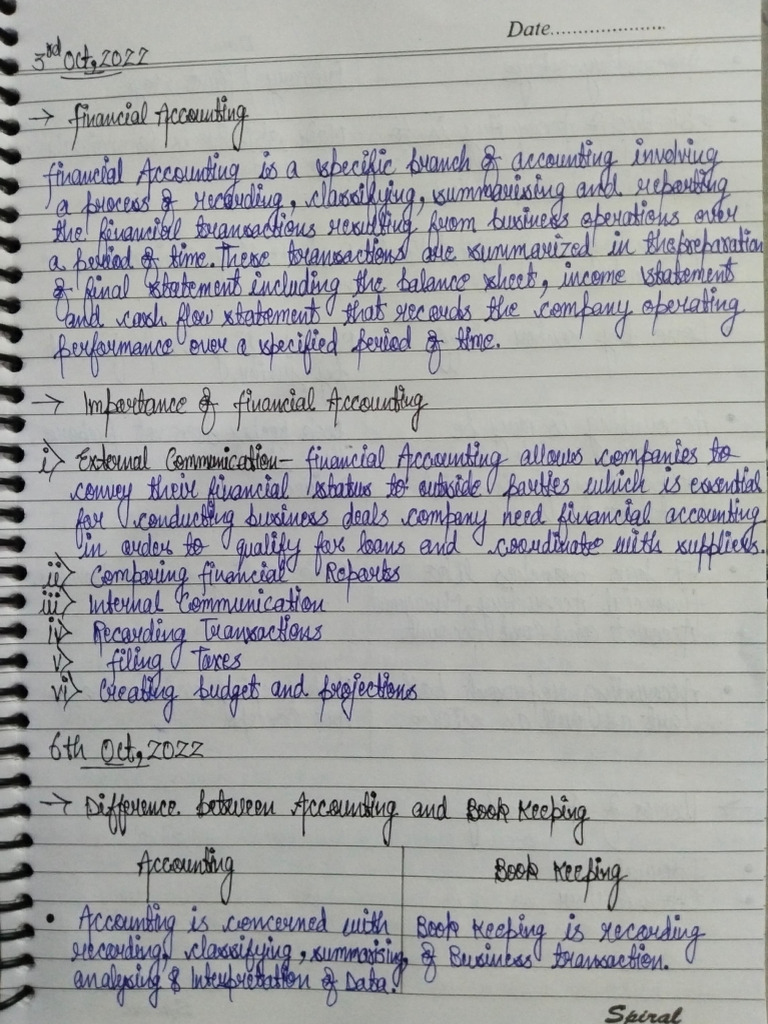 Date.....................
3rd Oct, 2022
→ Financial Accounting
Financial Accounting is a specific branch of accounting involving
a process of recording, classifying, summarising and reporting
the financial transactions resulting from business operations over
a period of time. These transactions are summarized in the preparation
of final statement including the balance sheet, income statement
and cash flow statement that records the company operating
performance over a specified period of time.
→ Importance of Financial Accounting
i) External Communication- Financial Accounting allows companies to
convey their financial status to outside parties which is essential
for conducting business deals company need financial accounting
in order to qualify for loans and coordinate with suppliers.
ii) Comparing Financial Reports
iii) Internal Communication
iv) Recording Transactions
v) Filing Taxes
vi) Creating budget and projections
6th Oct, 2022
→ Difference between Accounting and Book Keeping
Accounting Book Keeping
• Accounting is concerned with Book Keeping is recording
recording, classifying, summarising, of Business transaction.
analysing & Interpretation of Data.
Spiral